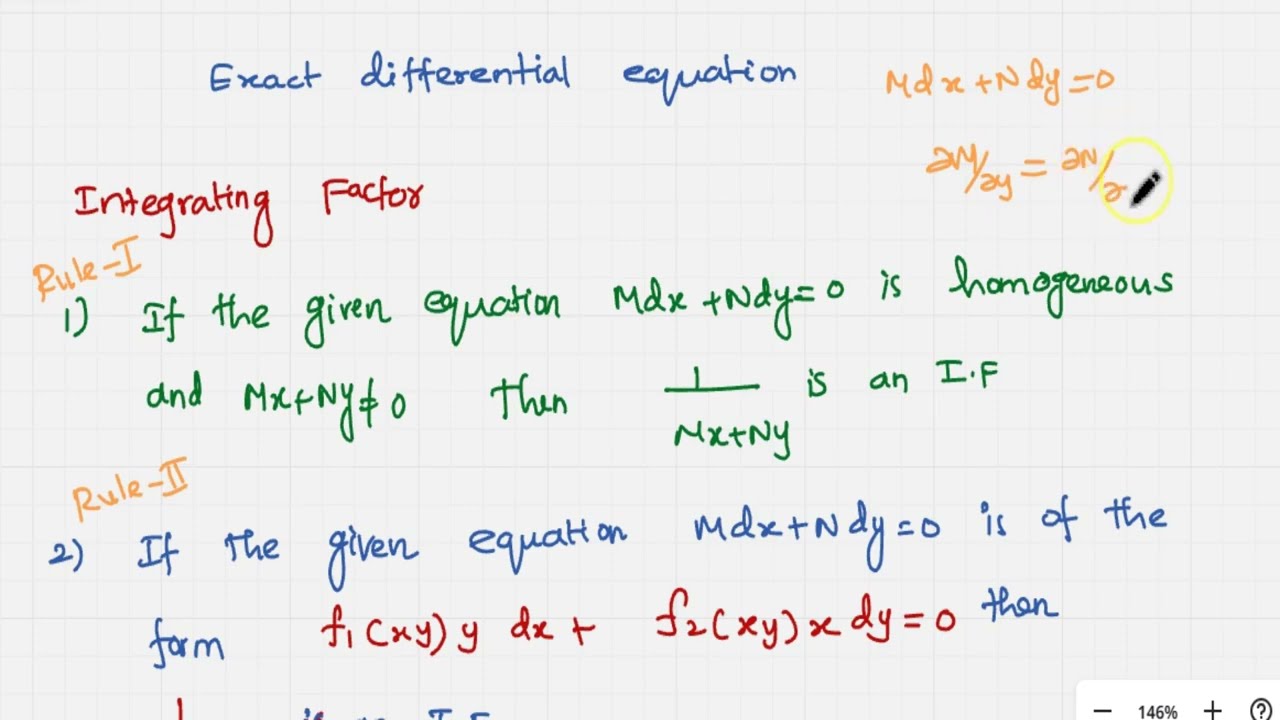 Exact differential equation Mdx+Ndy=0
∂M/∂y = ∂N/∂
Integrating Factor
Rule-I
1) If the given equation Mdx+Ndy=0 is homogeneous
and Mx+Ny≠0 then 1/Mx+Ny is an I.F
Rule-II
2) If the given equation Mdx+Ndy=0 is of the
form f1(xy)y dx + f2(xy)x dy=0 then
1 is an I.F
− 146% +